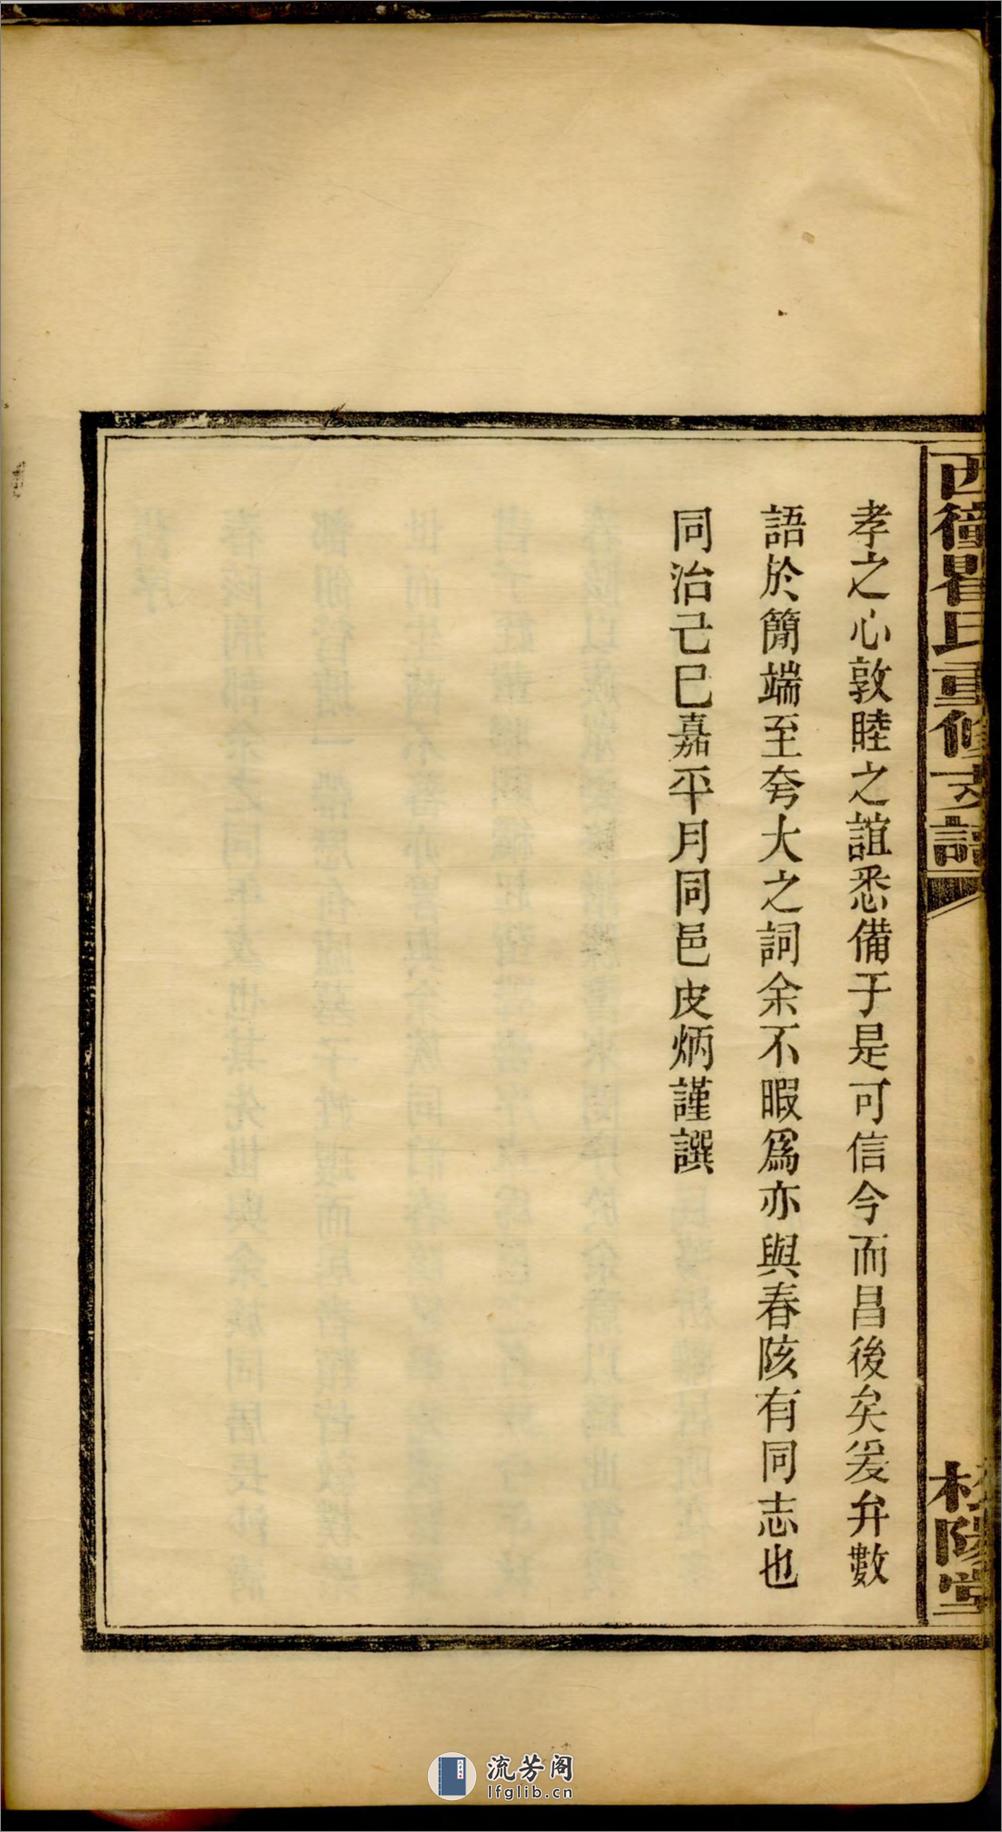 孝之心敦睦之誼悉備于是可信今而昌後矣爰弁數
語於簡端至夸大之詞余不暇爲亦與春陔有同志也
同治己巳嘉平月同邑皮炳謹譔
西衝瞿氏重修支譜
松陽堂
流芳阁
lfglib.cn